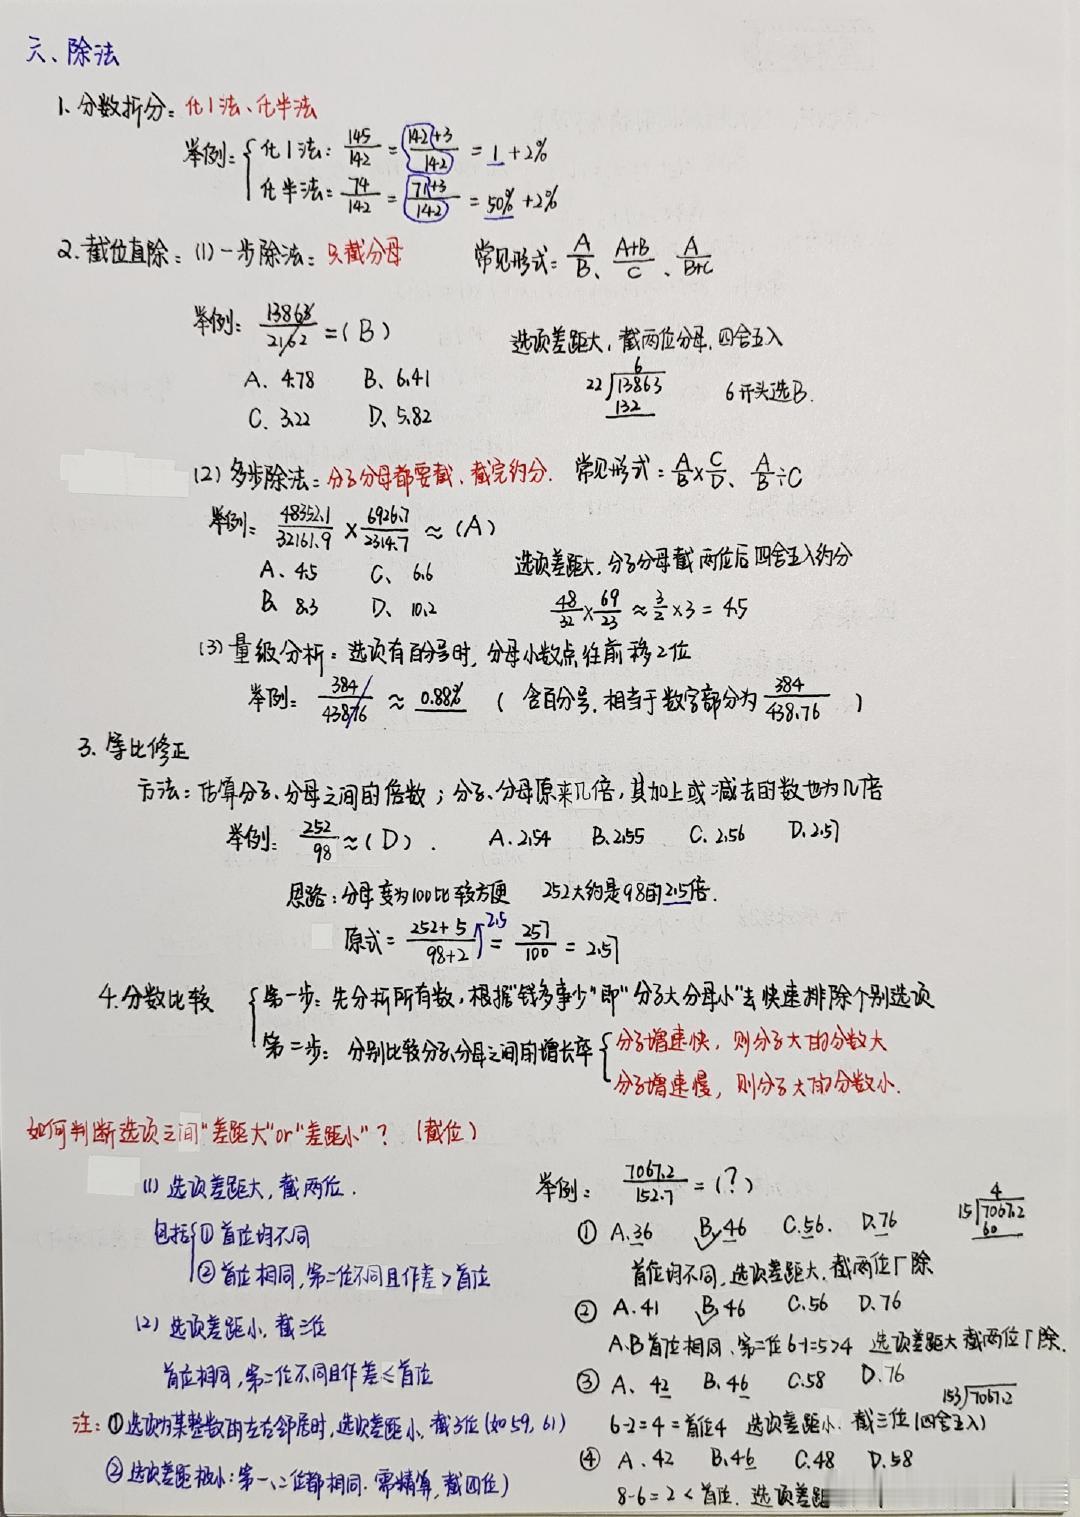 六、除法
1、分数拆分：化1法、化半法
举例：{ 化1法：145/142 = (142+3)/142 = 1 + 2%
化半法：74/142 = (71+3)/142 = 50% + 2%
2、截位直除：(1)一步除法：只截分母 常见形式：A/B、(A+B)/C、A/(B+C)
举例：13863/2162 =（B） 选项差距大，截两位分母，四舍五入
A、4.78 B、6.41
C、3.22 D、5.82
6
22 13863 6开头选B.
132
(2)多步除法：分子分母都要截、截完约分. 常见形式：A/B×C/D、A/B÷C
举例：48352.1/32161.9 × 6926.7/2314.7 ≈（A）
A、4.5 C、6.6 选项差距大，分子分母截两位后四舍五入约分
B、8.3 D、10.2 48/32×69/23≈3/2×3=4.5
(3)量级分析：选项有百分号时，分母小数点往前移2位
举例：384/43876 ≈ 0.88% （含百分号，相当于数字部分为384/438.76）
3、等比修正
方法：估算分子、分母之间的倍数；分子、分母原来几倍，其加上或减去的数也为几倍
举例：252/98≈（D）. A.2.54 B.2.55 C.2.56 D.2.57
思路：分母变为100比较方便 252大约是98的2.5倍.
原式=(252+5)/(98+2) 2.5 = 257/100 = 2.57
4.分数比较 { 第一步：先分析所有数，根据"钱多事少"即"分子大分母小"去快速排除个别选项
第二步：分别比较分子、分母之间的增长率 { 分子增速快，则分子大的分数大
分子增速慢，则分子大的分数小.
如何判断选项之间"差距大"or"差距小"？（截位）
(1) 选项差距大，截两位.
包括{ ① 首位均不同
② 首位相同，第二位不同且作差>首位
(2) 选项差距小，截三位
首位相同，第二位不同且作差≤首位
注：①选项为某整数的左右邻居时，选项差距小，截3位（如59，61）
②选项差距极小：第一、二位都相同.需精算，截四位）
举例：7067.2/152.7 =（?）
4
15 7067.2
60
① A.36 B.46 C.56. D.76
首位均不同，选项差距大，截两位厂除
② A.41 B.46 C.56 D.76
A.B首位相同、第二位6-1=5>4 选项差距大 截两位厂除.
③ A、42 B.46 C.58 D.76
153 7067.2
6-2=4=首位4 选项差距小.截三位（四舍五入）
④ A.42 B.46 C.48 D.58
8-6=2<首位. 选项差距